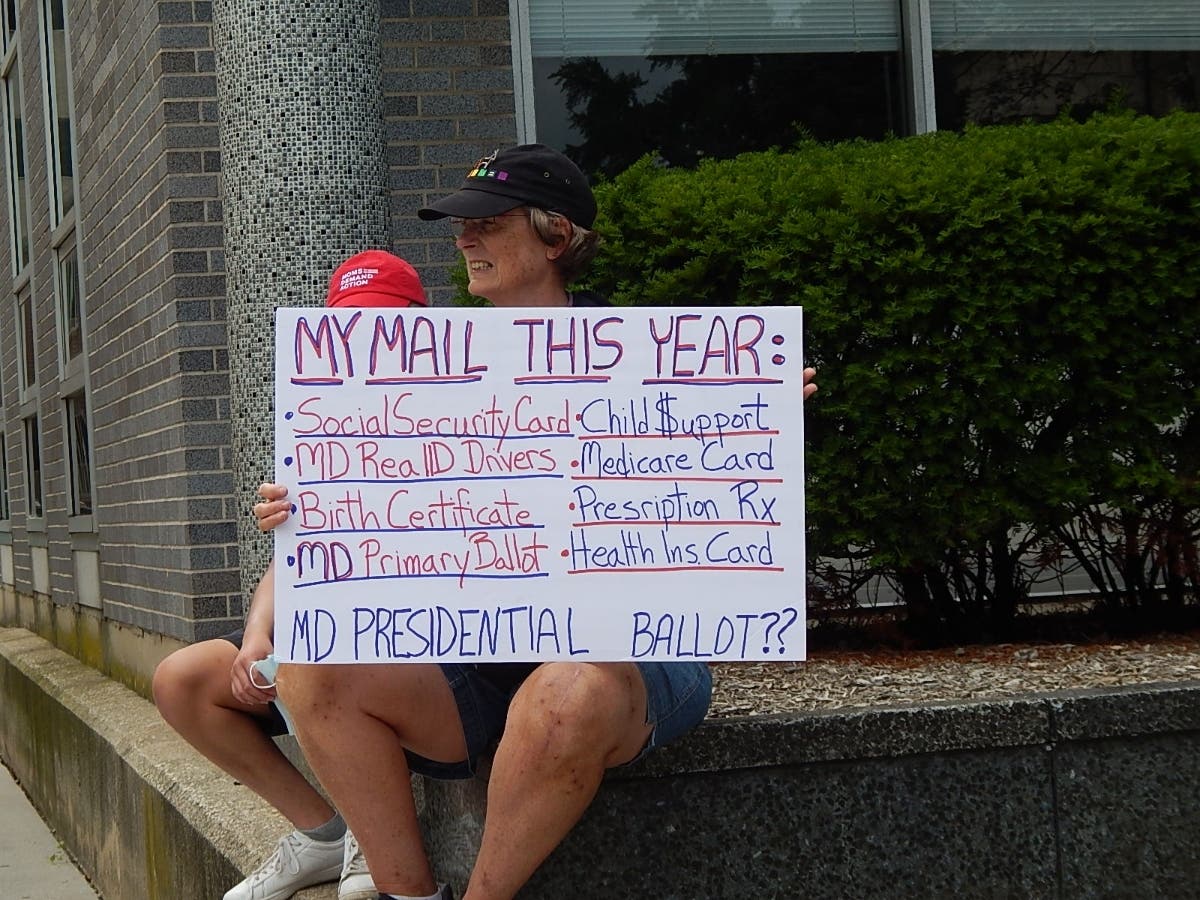 MOMS
DEMAND
ACTION
MY MAIL THIS YEAR:
• Social Security Card • Child $upport
• MD Real ID Drivers • Medicare Card
• Birth Certificate • Presription Rx
• MD Primary Ballot • Health Ins. Card
MD PRESIDENTIAL BALLOT??